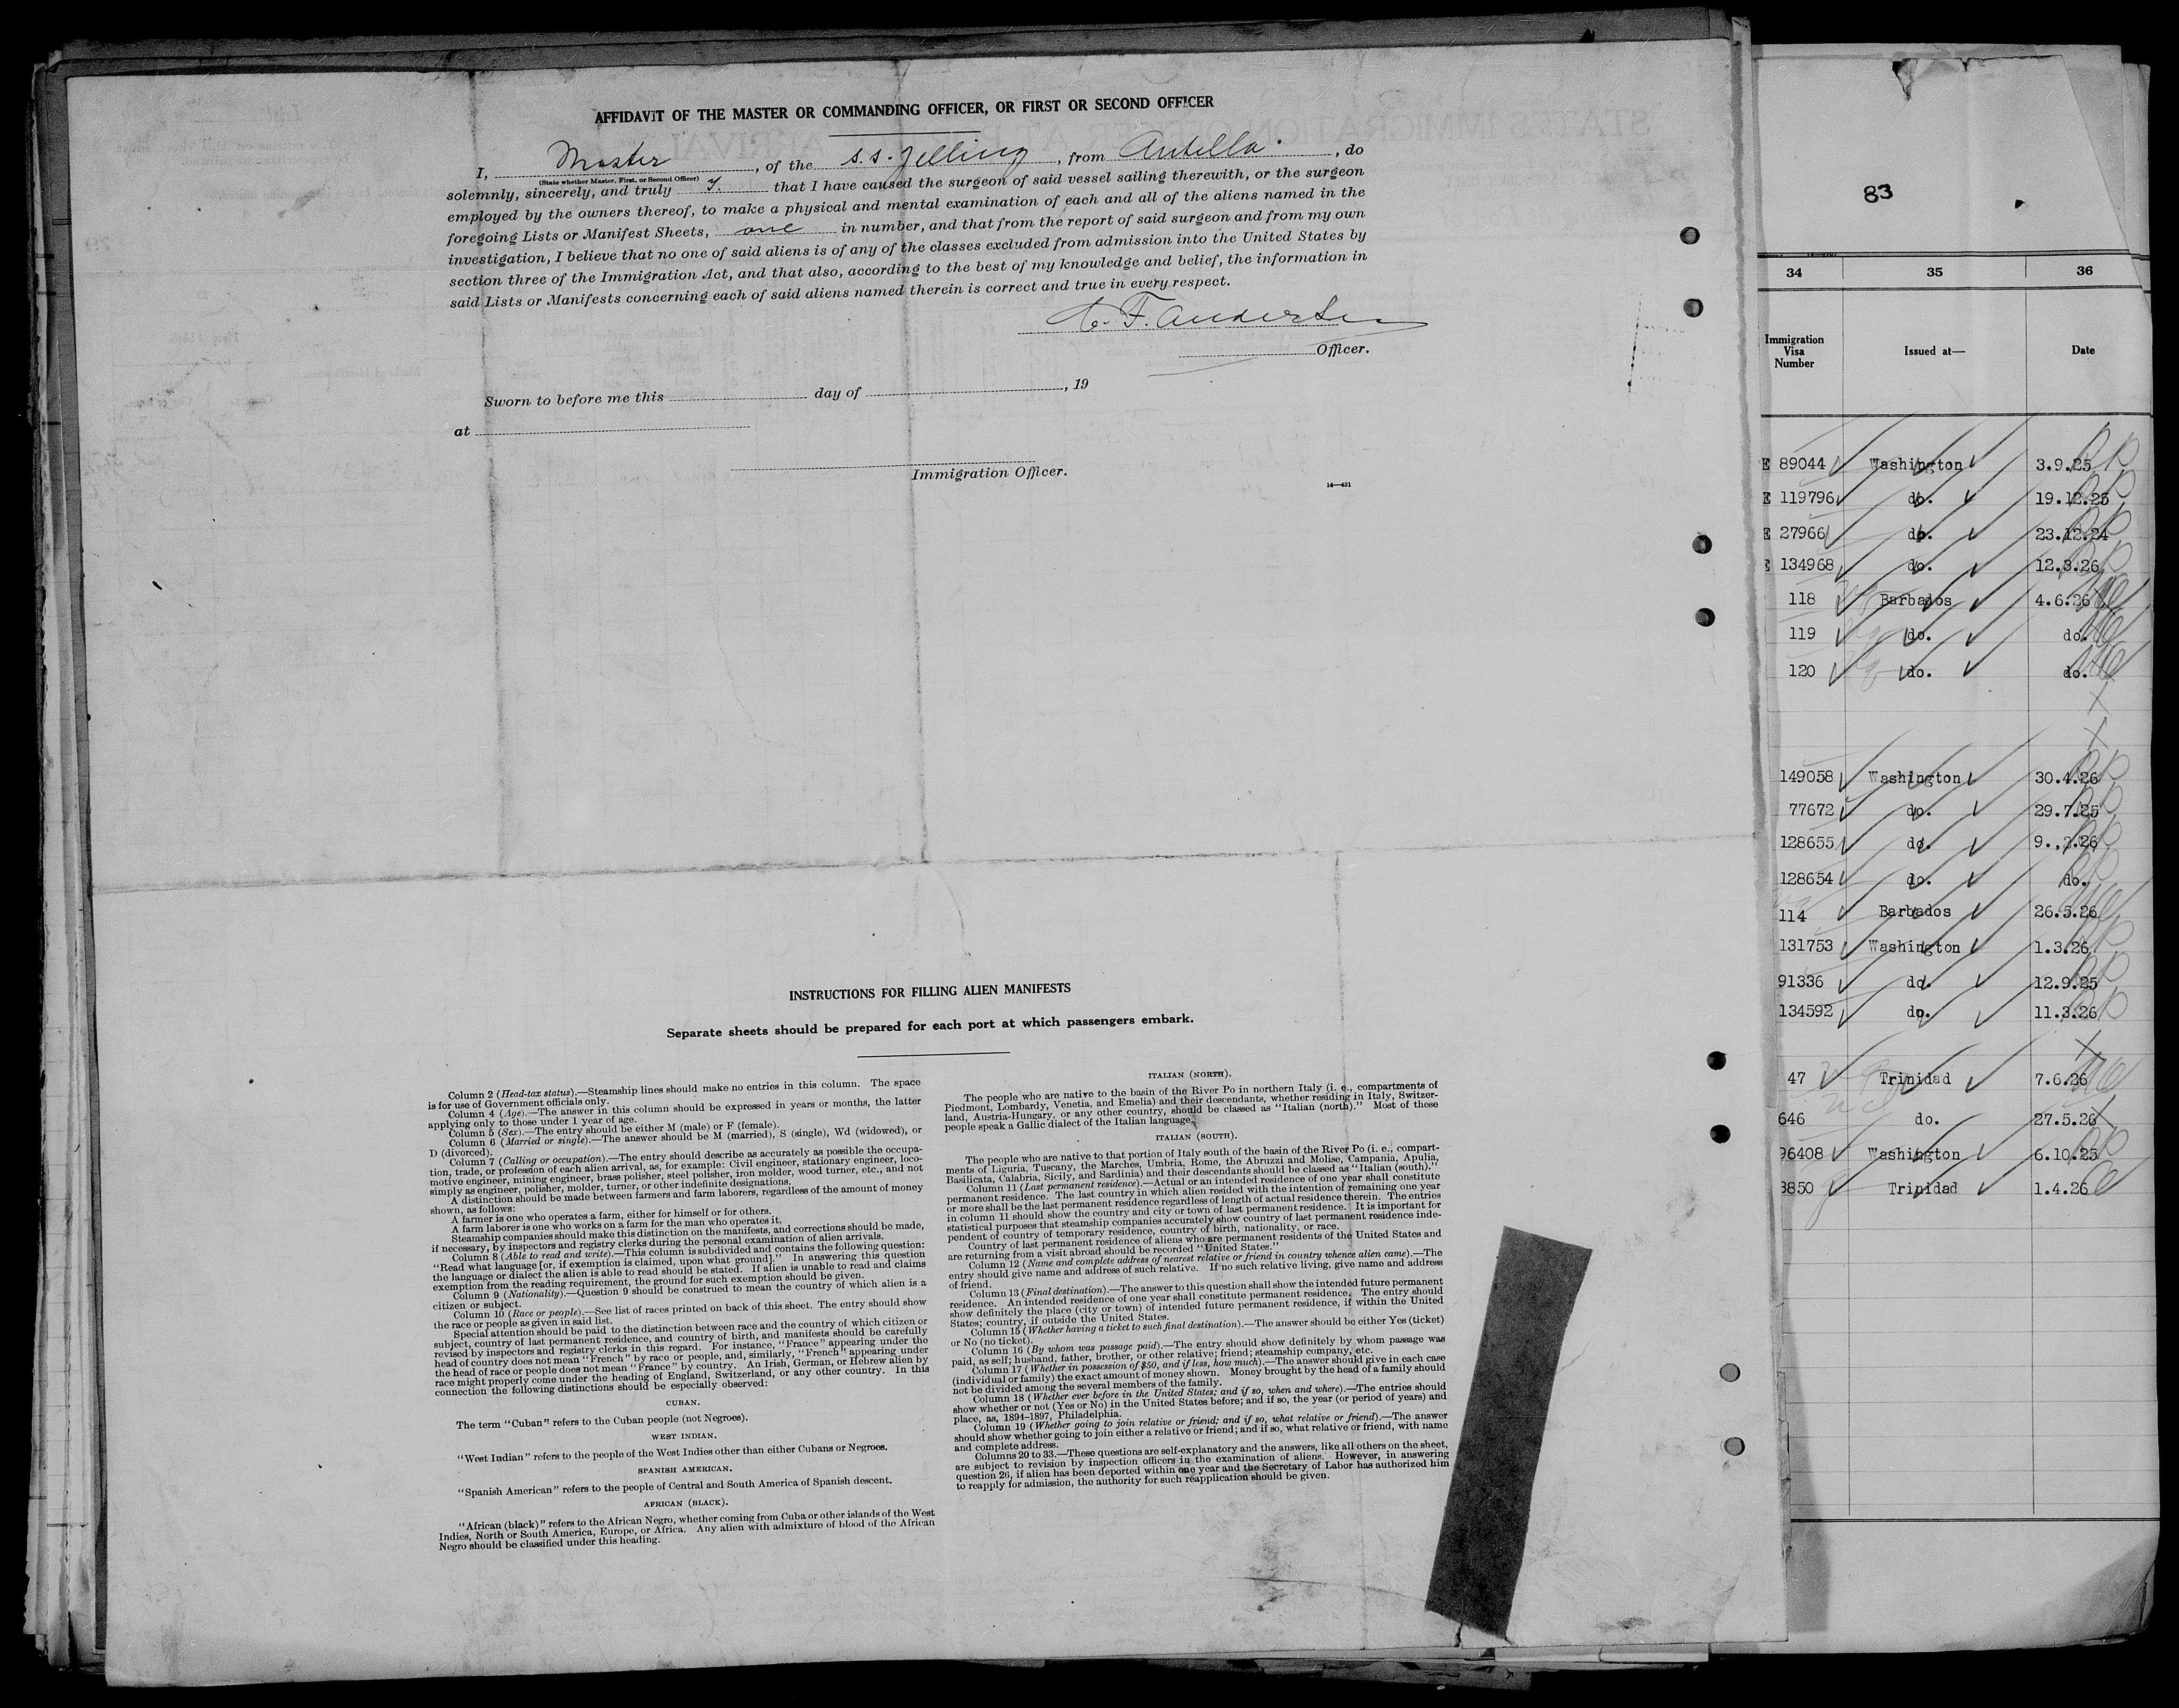 AFFIDAVIT OF THE MASTER OR COMMANDING OFFICER, OR FIRST OR SECOND OFFICER
I, Master, of the s.s. Jelling, from Antilla, do
(State whether Master, First, or Second Officer)
solemnly, sincerely, and truly that I have caused the surgeon of said vessel sailing therewith, or the surgeon
employed by the owners thereof, to make a physical and mental examination of each and all of the aliens named in the
foregoing Lists or Manifest Sheets, one in number, and that from the report of said surgeon and from my own
investigation, I believe that no one of said aliens is of any of the classes excluded from admission into the United States by
section three of the Immigration Act, and that also, according to the best of my knowledge and belief, the information in
said Lists or Manifests concerning each of said aliens named therein is correct and true in every respect.
F. Andersen
Officer.
Sworn to before me this day of , 19
at
Immigration Officer.
14—431
INSTRUCTIONS FOR FILLING ALIEN MANIFESTS
Separate sheets should be prepared for each port at which passengers embark.
Column 2 (Head-tax status).—Steamship lines should make no entries in this column. The space
is for use of Government officials only.
Column 4 (Age).—The answer in this column should be expressed in years or months, the latter
applying only to those under 1 year of age.
Column 5 (Sex).—The entry should be either M (male) or F (female).
Column 6 (Married or single).—The answer should be M (married), S (single), Wd (widowed), or
D (divorced).
Column 7 (Calling or occupation).—The entry should describe as accurately as possible the occupa-
tion, trade, or profession of each alien arrival, as, for example: Civil engineer, stationary engineer, loco-
motive engineer, mining engineer, brass polisher, steel polisher, iron molder, wood turner, etc., and not
simply as engineer, polisher, molder, turner, or other indefinite designations.
A distinction should be made between farmers and farm laborers, regardless of the amount of money
shown, as follows:
A farmer is one who operates a farm, either for himself or for others.
A farm laborer is one who works on a farm for the man who operates it.
Steamship companies should make this distinction on the manifests, and corrections should be made,
if necessary, by inspectors and registry clerks during the personal examination of alien arrivals.
Column 8 (Able to read and write).—This column is subdivided and contains the following question:
“Read what language [or, if exemption is claimed, upon what ground].” In answering this question
the language or dialect the alien is able to read should be stated. If alien is unable to read and claims
exemption from the reading requirement, the ground for such exemption should be given.
Column 9 (Nationality).—Question 9 should be construed to mean the country of which alien is a
citizen or subject.
Column 10 (Race or people).—See list of races printed on back of this sheet. The entry should show
the race or people as given in said list.
Special attention should be paid to the distinction between race and the country of which citizen or
subject, country of last permanent residence, and country of birth, and manifests should be carefully
revised by inspectors and registry clerks in this regard. For instance, “France” appearing under the
head of country does not mean “French” by race or people, and, similarly, “French” appearing under
the head of race or people does not mean “France” by country. An Irish, German, or Hebrew alien by
race might properly come under the heading of England, Switzerland, or any other country. In this
connection the following distinctions should be especially observed:
CUBAN.
The term “Cuban” refers to the Cuban people (not Negroes).
WEST INDIAN.
“West Indian” refers to the people of the West Indies other than either Cubans or Negroes.
SPANISH AMERICAN.
“Spanish American” refers to the people of Central and South America of Spanish descent.
AFRICAN (BLACK).
“African (black)” refers to the African Negro, whether coming from Cuba or other islands of the West
Indies, North or South America, Europe, or Africa. Any alien with admixture of blood of the African
Negro should be classified under this heading.
ITALIAN (NORTH).
The people who are native to the basin of the River Po in northern Italy (i. e., compartments of
Piedmont, Lombardy, Venetia, and Emelia) and their descendants, whether residing in Italy, Switzer-
land, Austria-Hungary, or any other country, should be classed as “Italian (north).” Most of these
people speak a Gallic dialect of the Italian language.
ITALIAN (SOUTH).
The people who are native to that portion of Italy south of the basin of the River Po (i. e., compart-
ments of Liguria, Tuscany, the Marches, Umbria, Rome, the Abruzzi and Molise, Campania, Apulia,
Basilicata, Calabria, Sicily, and Sardinia) and their descendants should be classed as “Italian (south).”
Column 11 (Last permanent residence).—Actual or an intended residence of one year shall constitute
permanent residence. The last country in which alien resided with the intention of remaining one year
or more shall be the last permanent residence regardless of length of actual residence therein. The entries
in column 11 should show the country and city or town of last permanent residence. It is important for
statistical purposes that steamship companies accurately show country of last permanent residence inde-
pendent of country of temporary residence, country of birth, nationality, or race.
Country of last permanent residence of aliens who are permanent residents of the United States and
are returning from a visit abroad should be recorded “United States.”
Column 12 (Name and complete address of nearest relative or friend in country whence alien came).—The
entry should give name and address of such relative. If no such relative living, give name and address
of friend.
Column 13 (Final destination).—The answer to this question shall show the intended future permanent
residence. An intended residence of one year shall constitute permanent residence. The entry should
show definitely the place (city or town) of intended future permanent residence, if within the United
States; country, if outside the United States.
Column 15 (Whether having a ticket to such final destination).—The answer should be either Yes (ticket)
or No (no ticket).
Column 16 (By whom was passage paid).—The entry should show definitely by whom passage was
paid, as self; husband, father, brother, or other relative; friend; steamship company, etc.
Column 17 (Whether in possession of $50, and if less, how much).—The answer should give in each case
(individual or family) the exact amount of money shown. Money brought by the head of a family should
not be divided among the several members of the family.
Column 18 (Whether ever before in the United States; and if so, when and where).—The entries should
show whether or not (Yes or No) in the United States before; and if so, the year (or period of years) and
place, as, 1894–1897, Philadelphia.
Column 19 (Whether going to join relative or friend; and if so, what relative or friend).—The answer
should show whether going to join either a relative or friend; and if so, what relative or friend, with name
and complete address.
Columns 20 to 33.—These questions are self-explanatory and the answers, like all others on the sheet,
are subject to revision by inspection officers in the examination of aliens. However, in answering
question 26, if alien has been deported within one year and the Secretary of Labor has authorized him
to reapply for admission, the authority for such reapplication should be given.
83
34 35 36
Immigration Visa Number Issued at— Date
E 89044 Washington 3.9.25
E 119796 do. 19.12.25
E 27966 do. 23.12.24
E 134968 do. 12.3.26
118 Barbados 4.6.26
119 do. do.
120 do. do.
149058 Washington 30.4.26
77672 do. 29.7.25
128655 do. 9.,2.26
128654 do. do.
114 Barbados 26.5.26
131753 Washington 1.3.26
91336 do. 12.9.25
134592 do. 11.3.26
47 Trinidad 7.6.26
646 do. 27.5.26
96408 Washington 6.10.25
3850 Trinidad 1.4.26